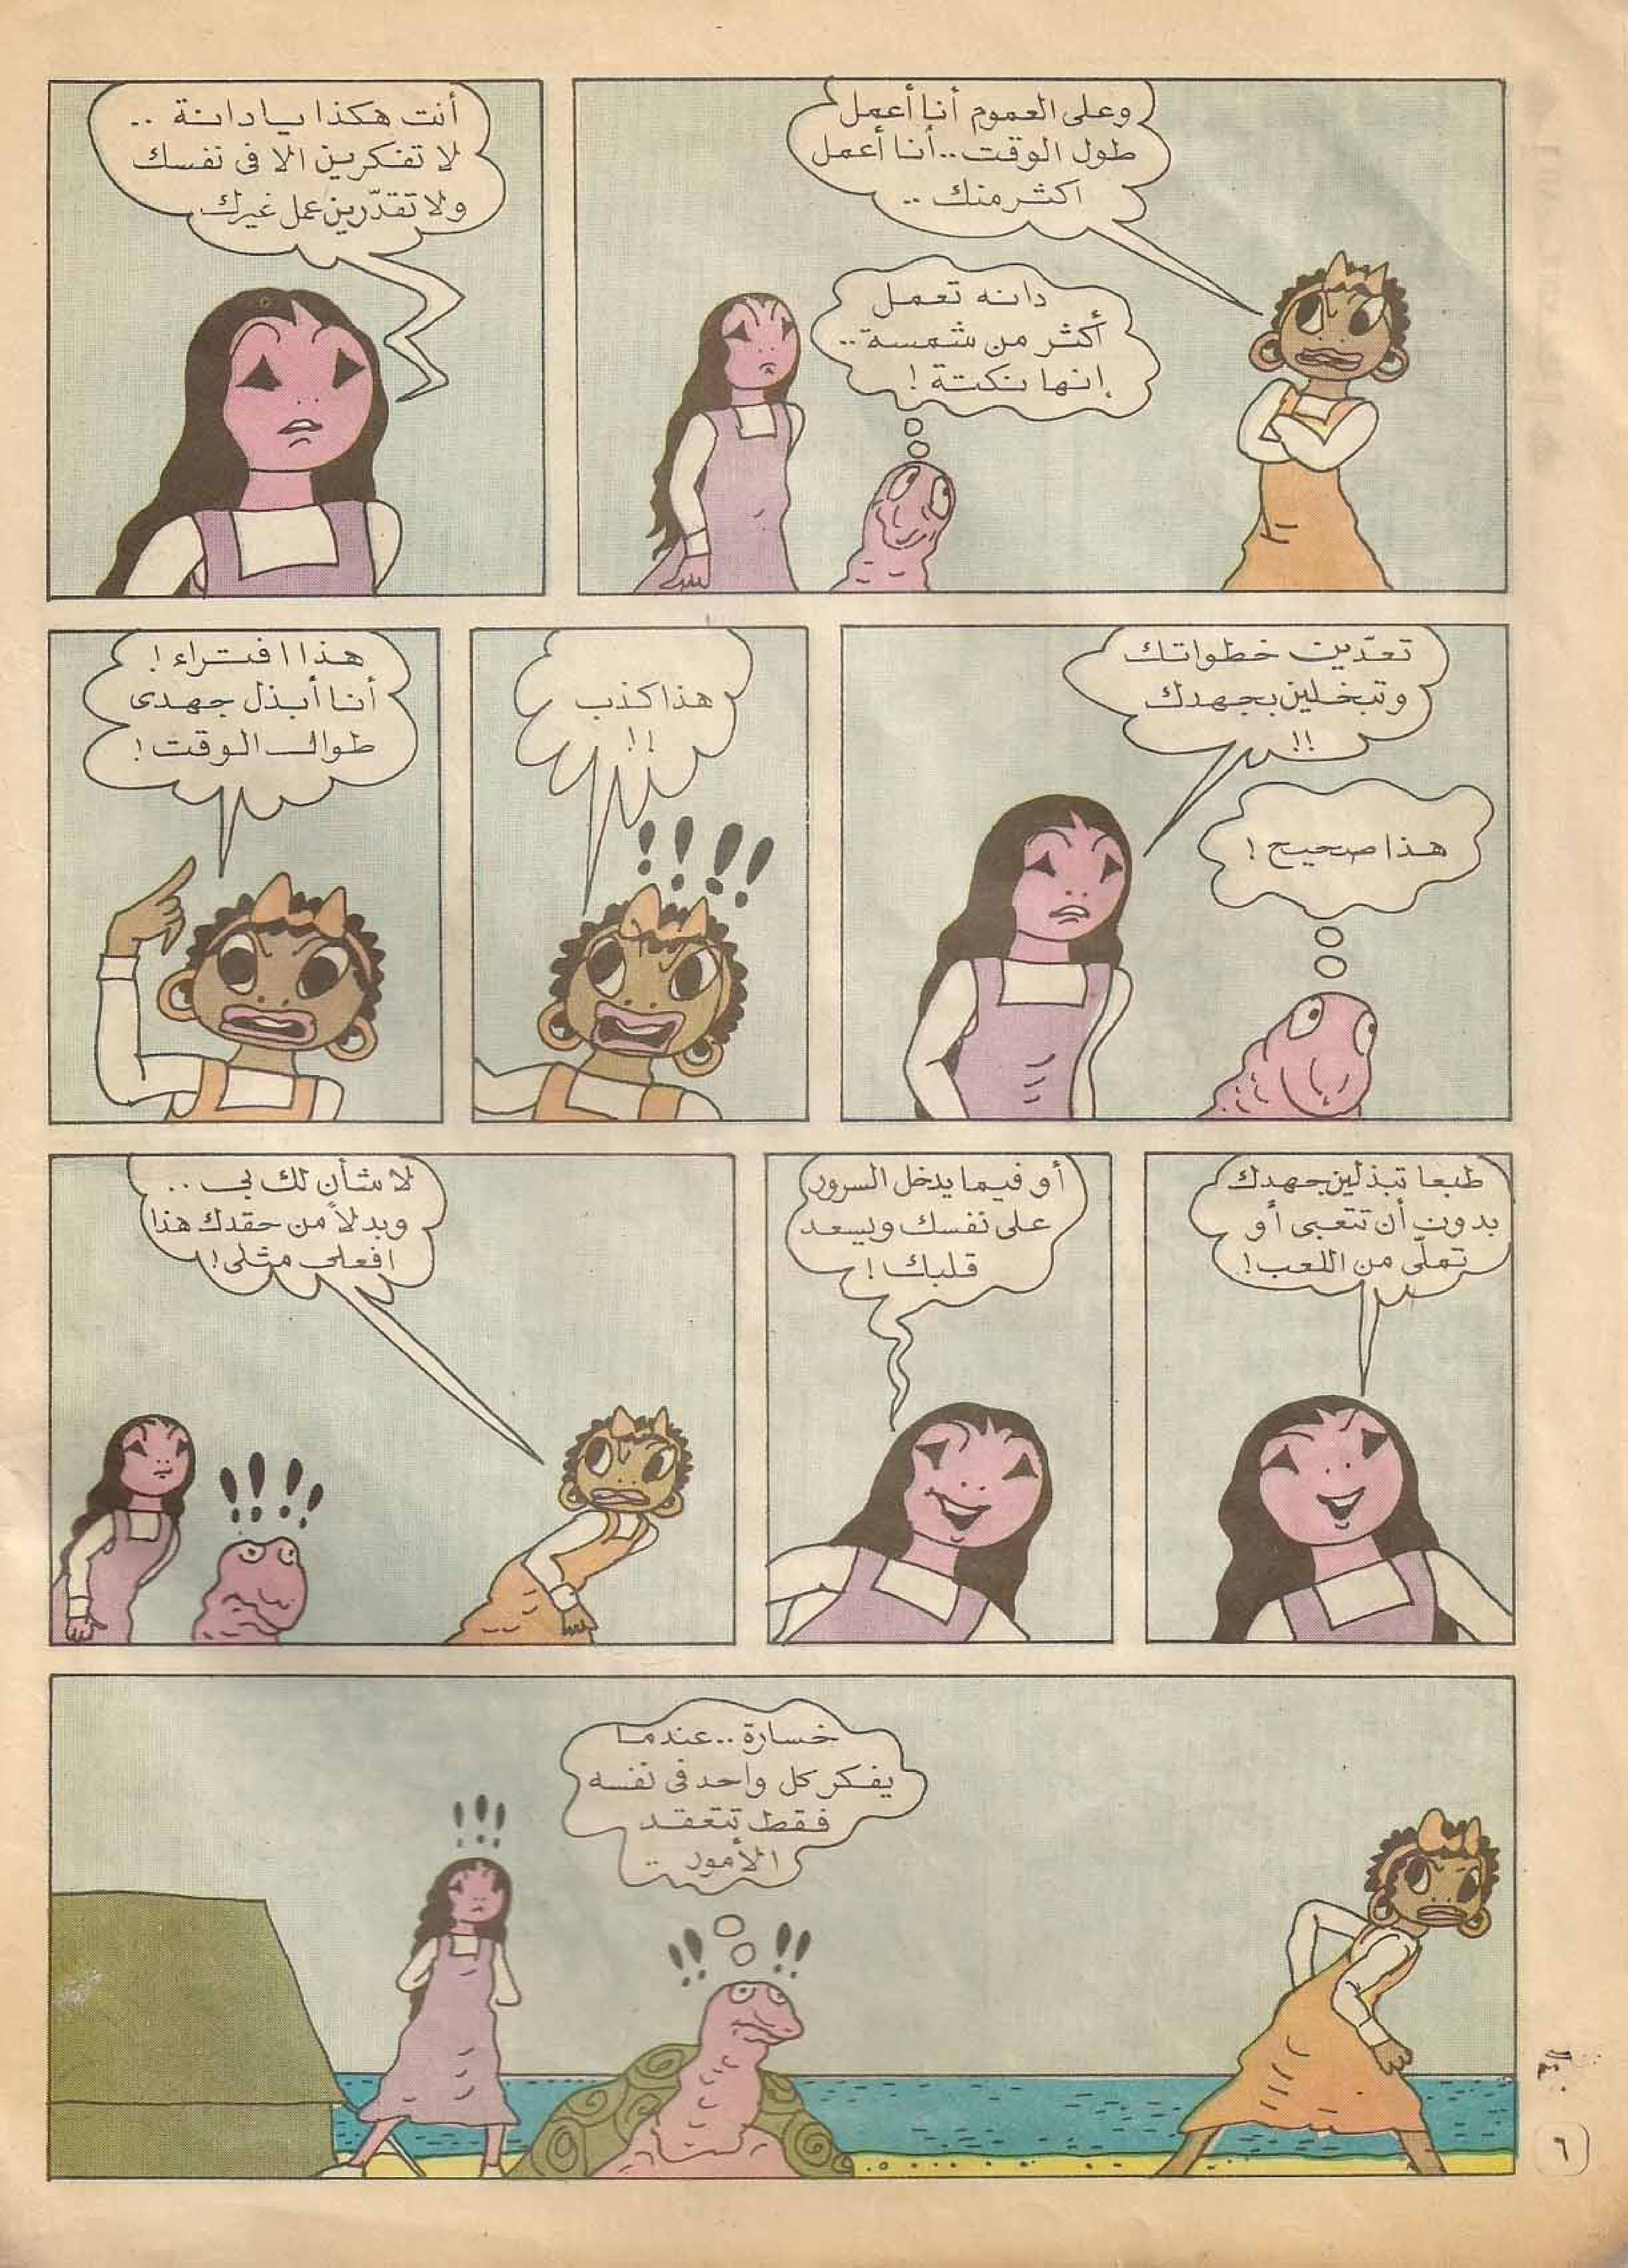 وعلى العموم أنا أعمل
طول الوقت.. أنا أعمل
اكثر منك ..
دانه تعمل
أكثر من شمسة..
إنها نكتة !
أنت هكذا يا دانة ..
لا تفكرين الا فى نفسك
ولا تقدّرين عمل غيرك
تعدّين خطواتك
وتبخلين بجهدك
!!
هذا صحيح !
هذا كذب
!!
!!!!
هذا افتراء !
أنا أبذل جهدى
طوال الوقت !
طبعا تبذلين جهدك
بدون أن تتعبى أو
تملّى من اللعب !
أو فيما يدخل السرور
على نفسك ويسعد
قلبك !
لا شأن لك بى ..
وبدلاً من حقدك هذا
افعلى مثلى !
!!!!
خسارة .. عندما
يفكر كل واحد فى نفسه
فقط تتعقد
الأمور ..
!!!
!! !!
٦